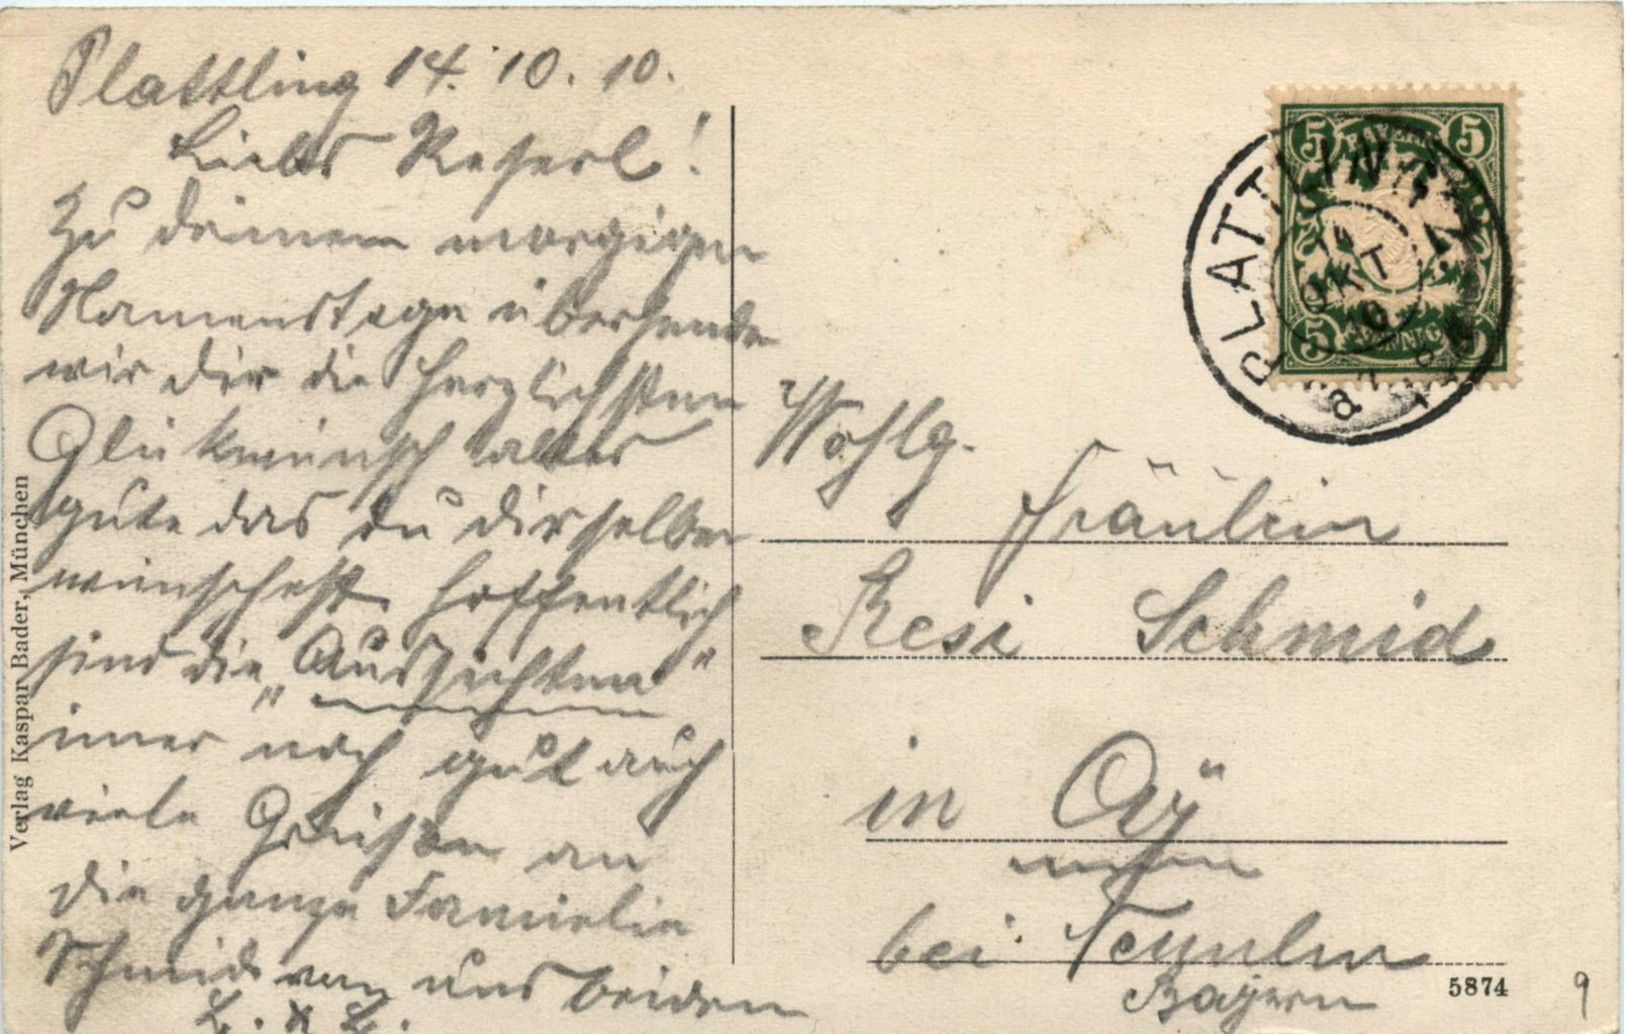 Plattling 14. 10. 10.
Liebes Reserl!
Zu deinem morgigen
Namenstage übersende
wir dir die herzlichsten
Glükwünsch alles
gute das du dir selber
wünschest. Hoffentlich
sind die „Aussichten"
imer noch gut auch
viele Grüßen an
die ganze Familie
Schmid von uns beiden
L. & L.
Wohlg.
Fräulein
Resi Schmid
in Aÿ
bei
Bayern
Verlag Kaspar Bader, München
5874
9
PLATTLING 2.
14
OKT
BAYERN
5 5
5 5
PFENNIG